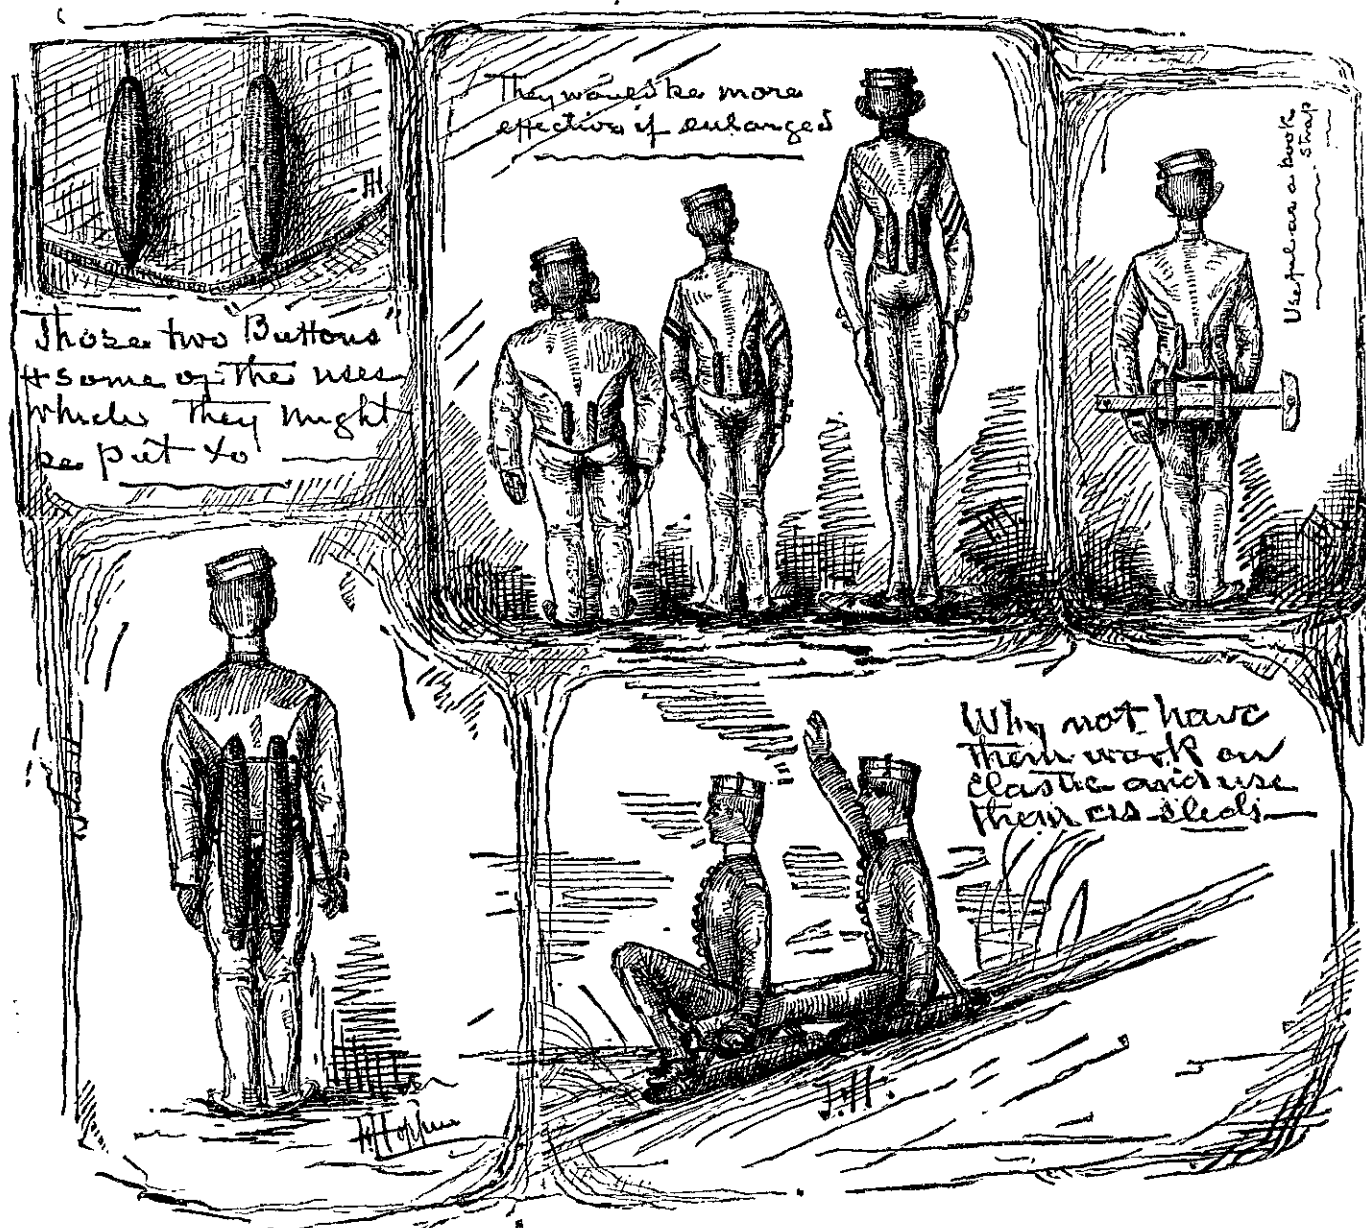 Those two Buttons
& some of the uses
which they might
be put to
They would be more
effective if enlarged
Useful as a book
strap
Why not have
them work on
elastic and use
them as sleds
J.H.